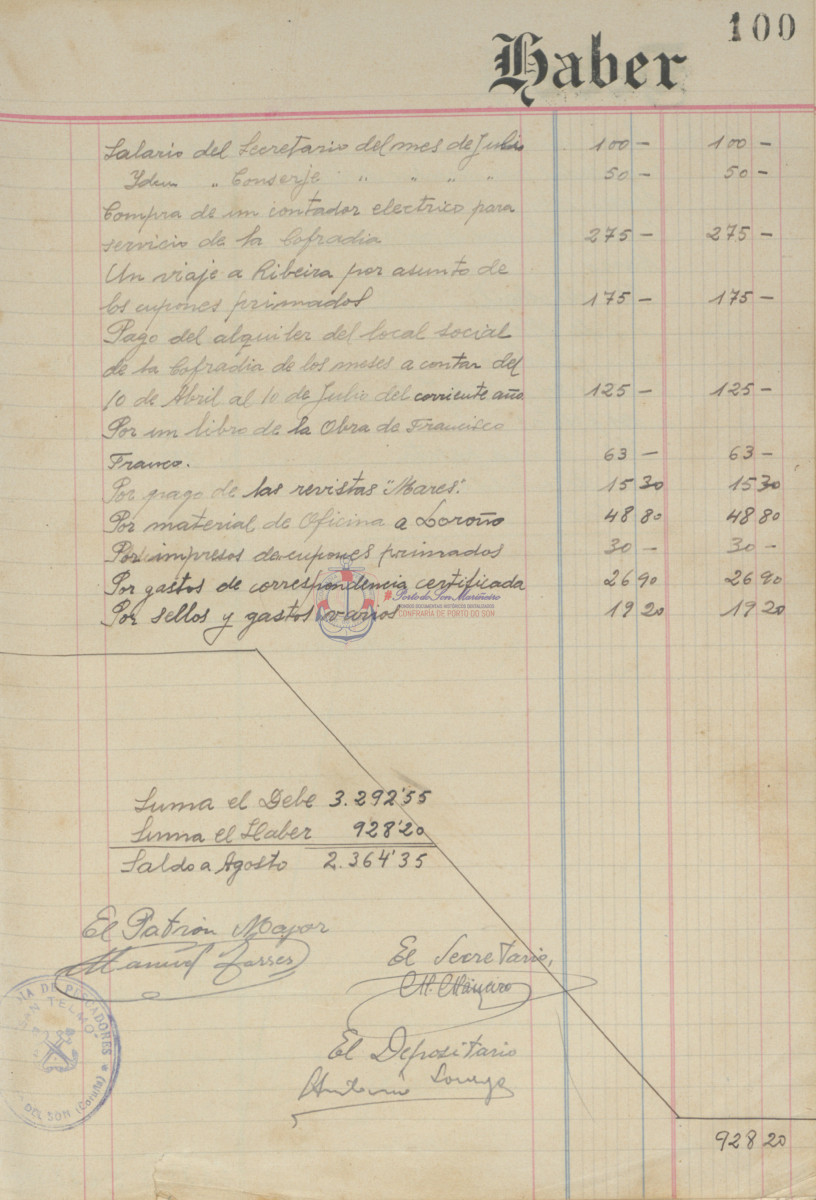 100
Haber
Salario del Secretario del mes de Julio 100 - 100 -
Ydem " Conserje " " " " 50 - 50 -
Compra de un contador electrico para
servicio de la Cofradia 275 - 275 -
Un viaje a Ribeira por asunto de
los cupones primados 175 - 175 -
Pago del alquiler del local social
de la Cofradia de los meses a contar del
10 de Abril al 10 de Julio del corriente año 125 - 125 -
Por un libro de la Obra de Francisco
Franco. 63 - 63 -
Por pago de las revistas "Mares". 15 30 15 30
Por material de Oficina a Loroño 48 80 48 80
Por impresos de cupones primados 30 - 30 -
Por gastos de correspondencia certificada 26 90 26 90
Por sellos y gastos varios 19 20 19 20
#Porto do Son Mariñeiro
FONDOS DOCUMENTAIS HISTÓRICOS DIXITALIZADOS
CONFRARÍA DE PORTO DO SON
Suma el Debe 3.292'55
Suma el Haber 928'20
Saldo a Agosto 2.364'35
El Patrón Mayor
Manuel
El Secretario,
M.
El Depositario
Antonio
DE PESCADORES
"SAN TELMO"
DEL SON (Coruña)
928 20